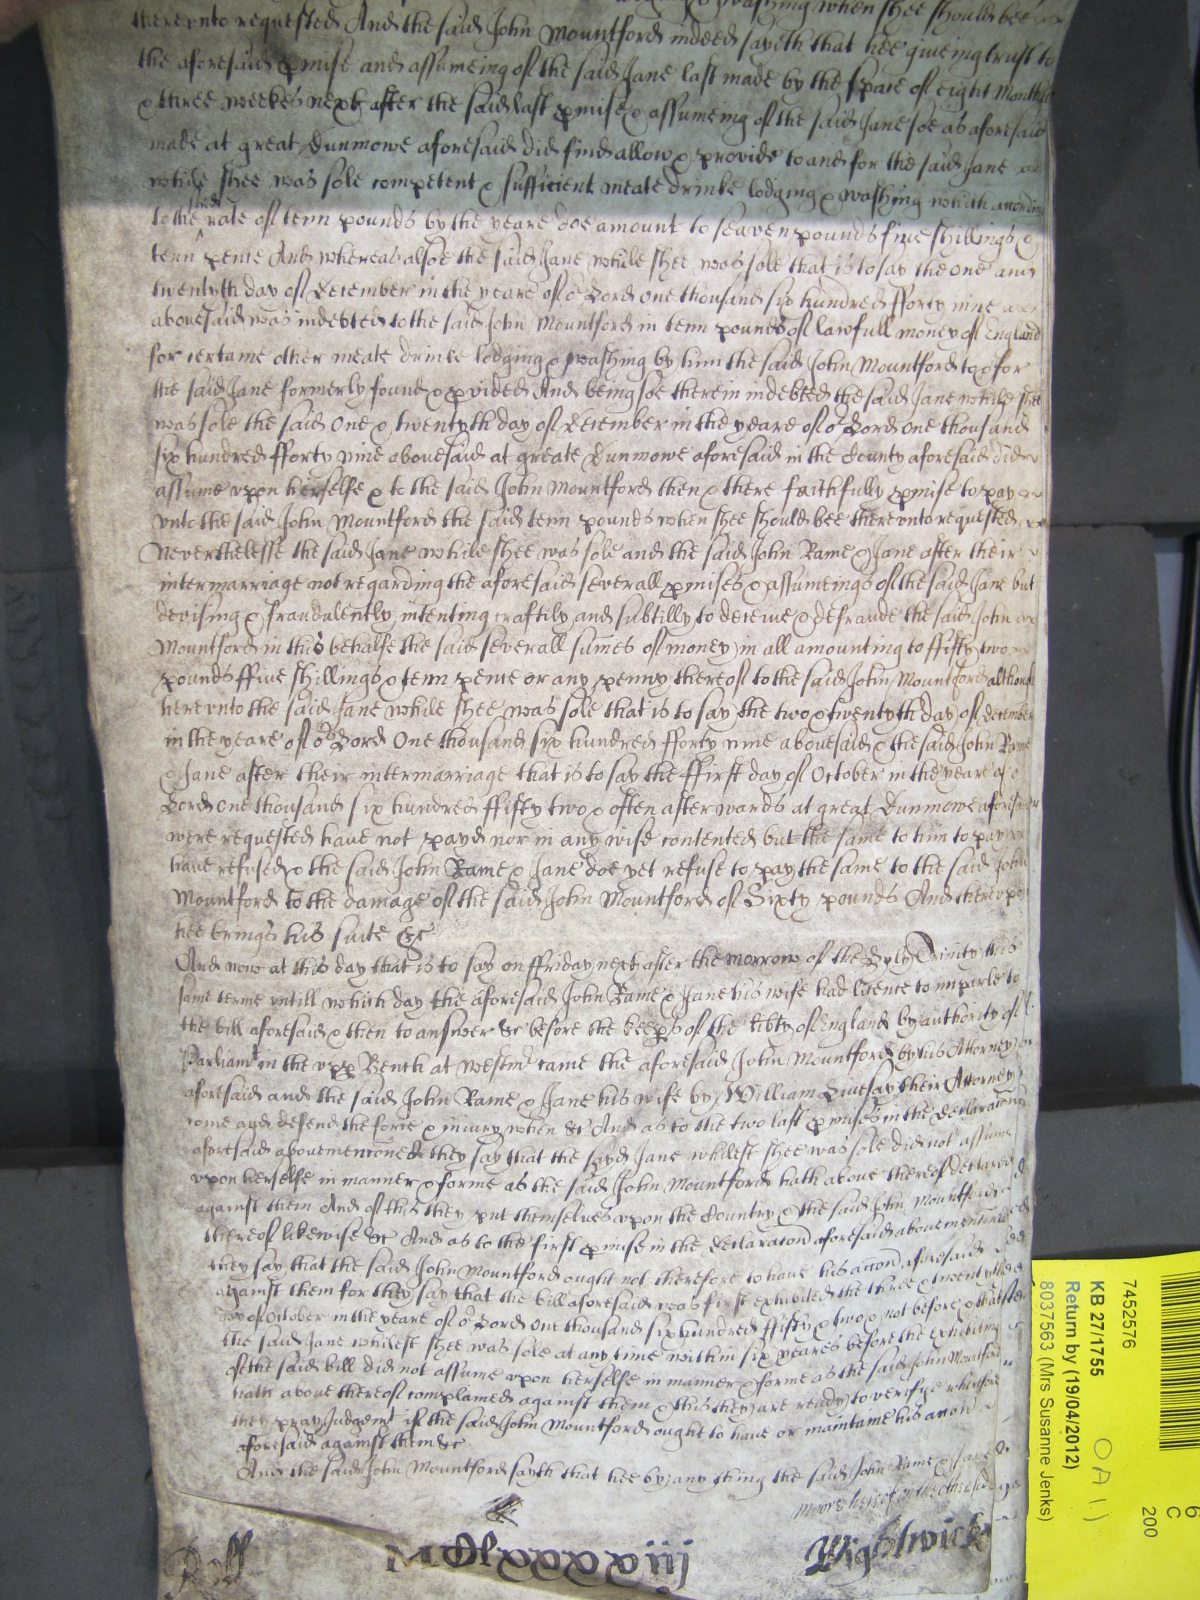 washing when shee should bee
therevnto requested And the said John Mountford indeed sayeth that hee giveing trust to
the aforesaid pmise and assumeing of the said Jane last made by the space of eight Monthes
& three weekes next after the said last pmise & assumeing of the said Jane soe as aforesaid
made at great Dunmowe aforesaid did find allow & provide to and for the said Jane
while shee was sole competent & sufficient meate drinke lodging & washing which according
to the said rate of tenn pounds by the yeare doe amount to seaven pounds five shillings &
tenn pence And whereas alsoe the said Jane while shee was sole that is to say the one and
twentyth day of December in the yeare of or Lord One thousand six hundred fforty nine
abovesaid was indebted to the said John Mountford in tenn pounds of lawfull money of England
for certaine other meate drinke lodging & washing by him the said John Mountford to & for
the said Jane formerly found & pvided And being soe therein indebted the said Jane while shee
was sole the said One & twentyth day of December in the yeare of or Lord One thousand
six hundred fforty nine abovesaid at greate Dunmowe aforesaid in the County aforesaid did
assume vpon herselfe & to the said John Mountford then & there faithfully pmise to pay
vnto the said John Mountford the said tenn pounds when shee should bee therevnto requested
Neverthelesse the said Jane while shee was sole and the said John Rame & Jane after their
intermarriage not regarding the aforesaid severall pmises & assumeings of the said Jane but
devising & fraudulently intenting craftily and subtilly to deceive & defraude the said John
Mountford in this behalfe the said severall sumes of money in all amounting to ffifty two
pounds ffive shillings & tenn pence or any penny thereof to the said John Mountford although
herevnto the said Jane while shee was sole that is to say the two & twentyth day of December
in the yeare of or Lord One thousand six hundred fforty nine abovesaid & the said John Rame
& Jane after their intermarriage that is to say the ffirst day of October in the yeare of or
Lord One thousand six hundred ffifty two & often afterwards at great Dunmowe aforesaid
were requested have not payd nor in any wise contented but the same to him to pay
have refused & the said John Rame & Jane doe yet refuse to pay the same to the said John
Mountford to the damage of the said John Mountford of Sixty pounds And therevpon
hee brings his suite &c
And now at this day that is to say on ffriday next after the morrow of the Holy Trinity this
same terme vntill which day the aforesaid John Rame & Jane his wife had licence to imparle to
the bill aforesaid & then to answer &c before the keeps of the libty of England by authority of
Parliamt in the vpp Bench at Westmr came the aforesaid John Mountford by his Attorney
aforesaid and the said John Rame & Jane his wife by William Livesay their Attorney
come and defend the force & injury when &c And as to the two last pmises in the Declaracon
aforesaid abovemenconed they say that the sayd Jane whilest shee was sole did not assume
vpon herselfe in manner & forme as the said John Mountford hath above thereof declared
against them And of this they put themselves vpon the Country & the said John Mountford
thereof likewise &c And as to the first pmise in the Declaracon aforesaid abovemenconed
they say that the said John Mountford ought not therefore to have his accon aforesaid
against them for they say that the bill aforesaid was first exhibited the three & twentyth
day of October in the yeare of or Lord One thousand six hundred ffifty & two & not before & that
the said Jane whilest shee was sole at any time within six yeares before the exhibiting
of the said bill did not assume vpon herselfe in manner & forme as the said John Mountford
hath above thereof complained against them & this they are ready to verifye wherefore
they pray Judgemt if the said John Mountford ought to have or maintaine his accon
aforesaid against them &c
And the said John Mountford sayth that hee by any thing the said John Rame & Jane
Roll MDlxxxxviij Wightwicke
7452576
KB 27/1755
Return by (19/04/2012)
8037563 (Mrs Susanne Jenks)
OA 1)
C
200